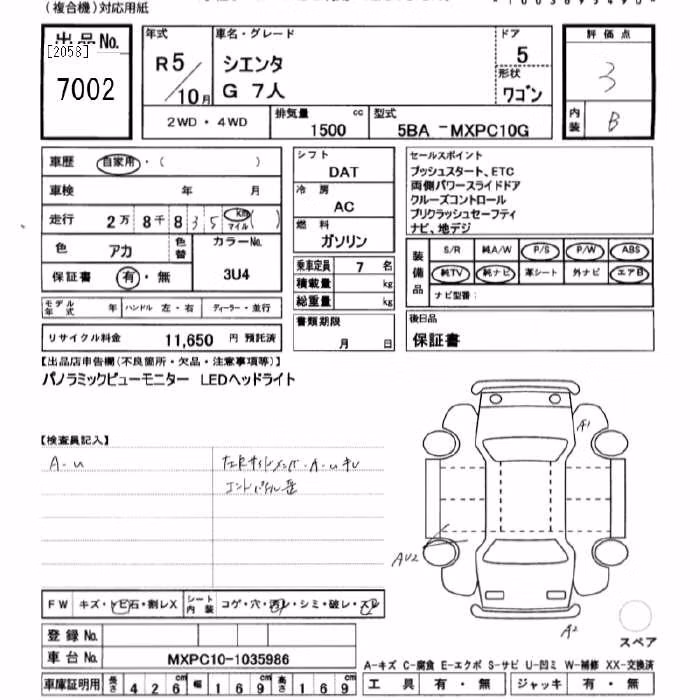 (複合機)対応用紙
出品No.
[2058]
7002
年式
R5/10月
車名・グレード
シエンタ
G 7人
ドア
5
形状
ワゴン
評価点
3
内装
B
2WD・4WD
排気量 cc
1500
型式
5BA -MXPC10G
車歴 自家用・( )
車検 年 月
走行 2万8千835 km マイル ( )
色 アカ
色替
カラーNo.
3U4
保証書 有・無
モデル年式 年 ハンドル 左・右 ディーラー・並行
リサイクル料金 11,650 円 預託済
シフト
DAT
冷房
AC
燃料
ガソリン
乗車定員 7 名
積載量 kg
総重量 kg
書類期限
月 日
セールスポイント
プッシュスタート、ETC
両側パワースライドドア
クルーズコントロール
プリクラッシュセーフティ
ナビ、地デジ
装備品
S/R 純A/W P/S P/W ABS
純TV 純ナビ 革シート 外ナビ エアB
ナビ型番:
後日品
保証書
【出品店申告欄(不良箇所・欠品・注意事項等)】
パノラミックビューモニター LEDヘッドライト
【検査員記入】
A-u
A1
AU2
A2
スペア
FW キズ・トビ石・割レX
シート内装 コゲ・穴・汚レ・シミ・破レ・スレ
登録No.
車台No. MXPC10-1035986
車庫証明用 長さ 426cm 幅 169cm 高さ 169cm
A-キズ C-腐食 E-エクボ S-サビ U-凹ミ W-補修 XX-交換済
工具 有・無 ジャッキ 有・無